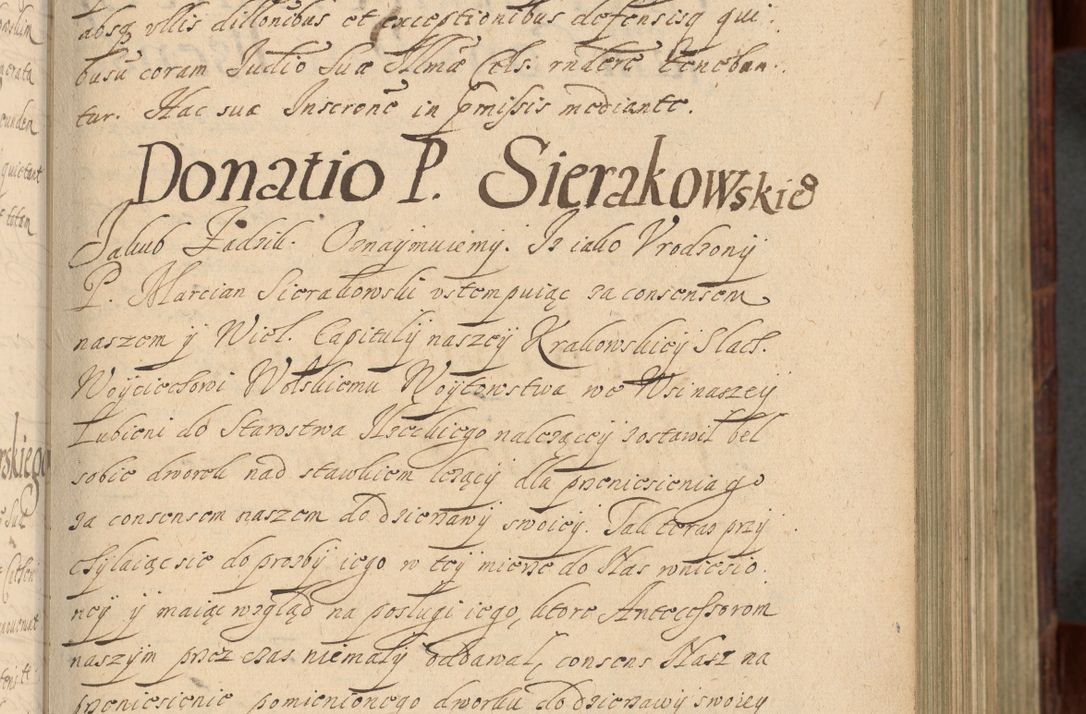 absq vllis dillonibus et exceptionibus defensisq qui:
busu coram Judio Suæ Illmæ Cels. rndere teneban:
tur. Hac suæ Inscrone in pmissis mediante.
Donatio P. Sierakowskie
Jakub Zadzik. Oznaymuiemy. Iz iako Vrodzony
P. Marcian Sierakowski vstempuiąc za consensem
naszem y Wiel. Capituly naszey Krakowskiey Slach.
Woyciechowi Wolskiemu Woytowstwa we Wsi naszey
Lubieni do Starostwa Ilzeckiego nalezącey zostawil bel
sobie dworek nad stawkiem lezący dla przeniesienia go
za consensem naszem do dzierzawy swoiey. Tak teraz przy
chylaiąc sie do prozby iego w tey mierze do Nas wniesio
ney y maiąc wzgląd na poslugi iego, ktore Antecessorom
naszym przez czas niemaly oddawal, consens Nasz na
przeniesienie pomienionego dworku do dzierzawy swoiey